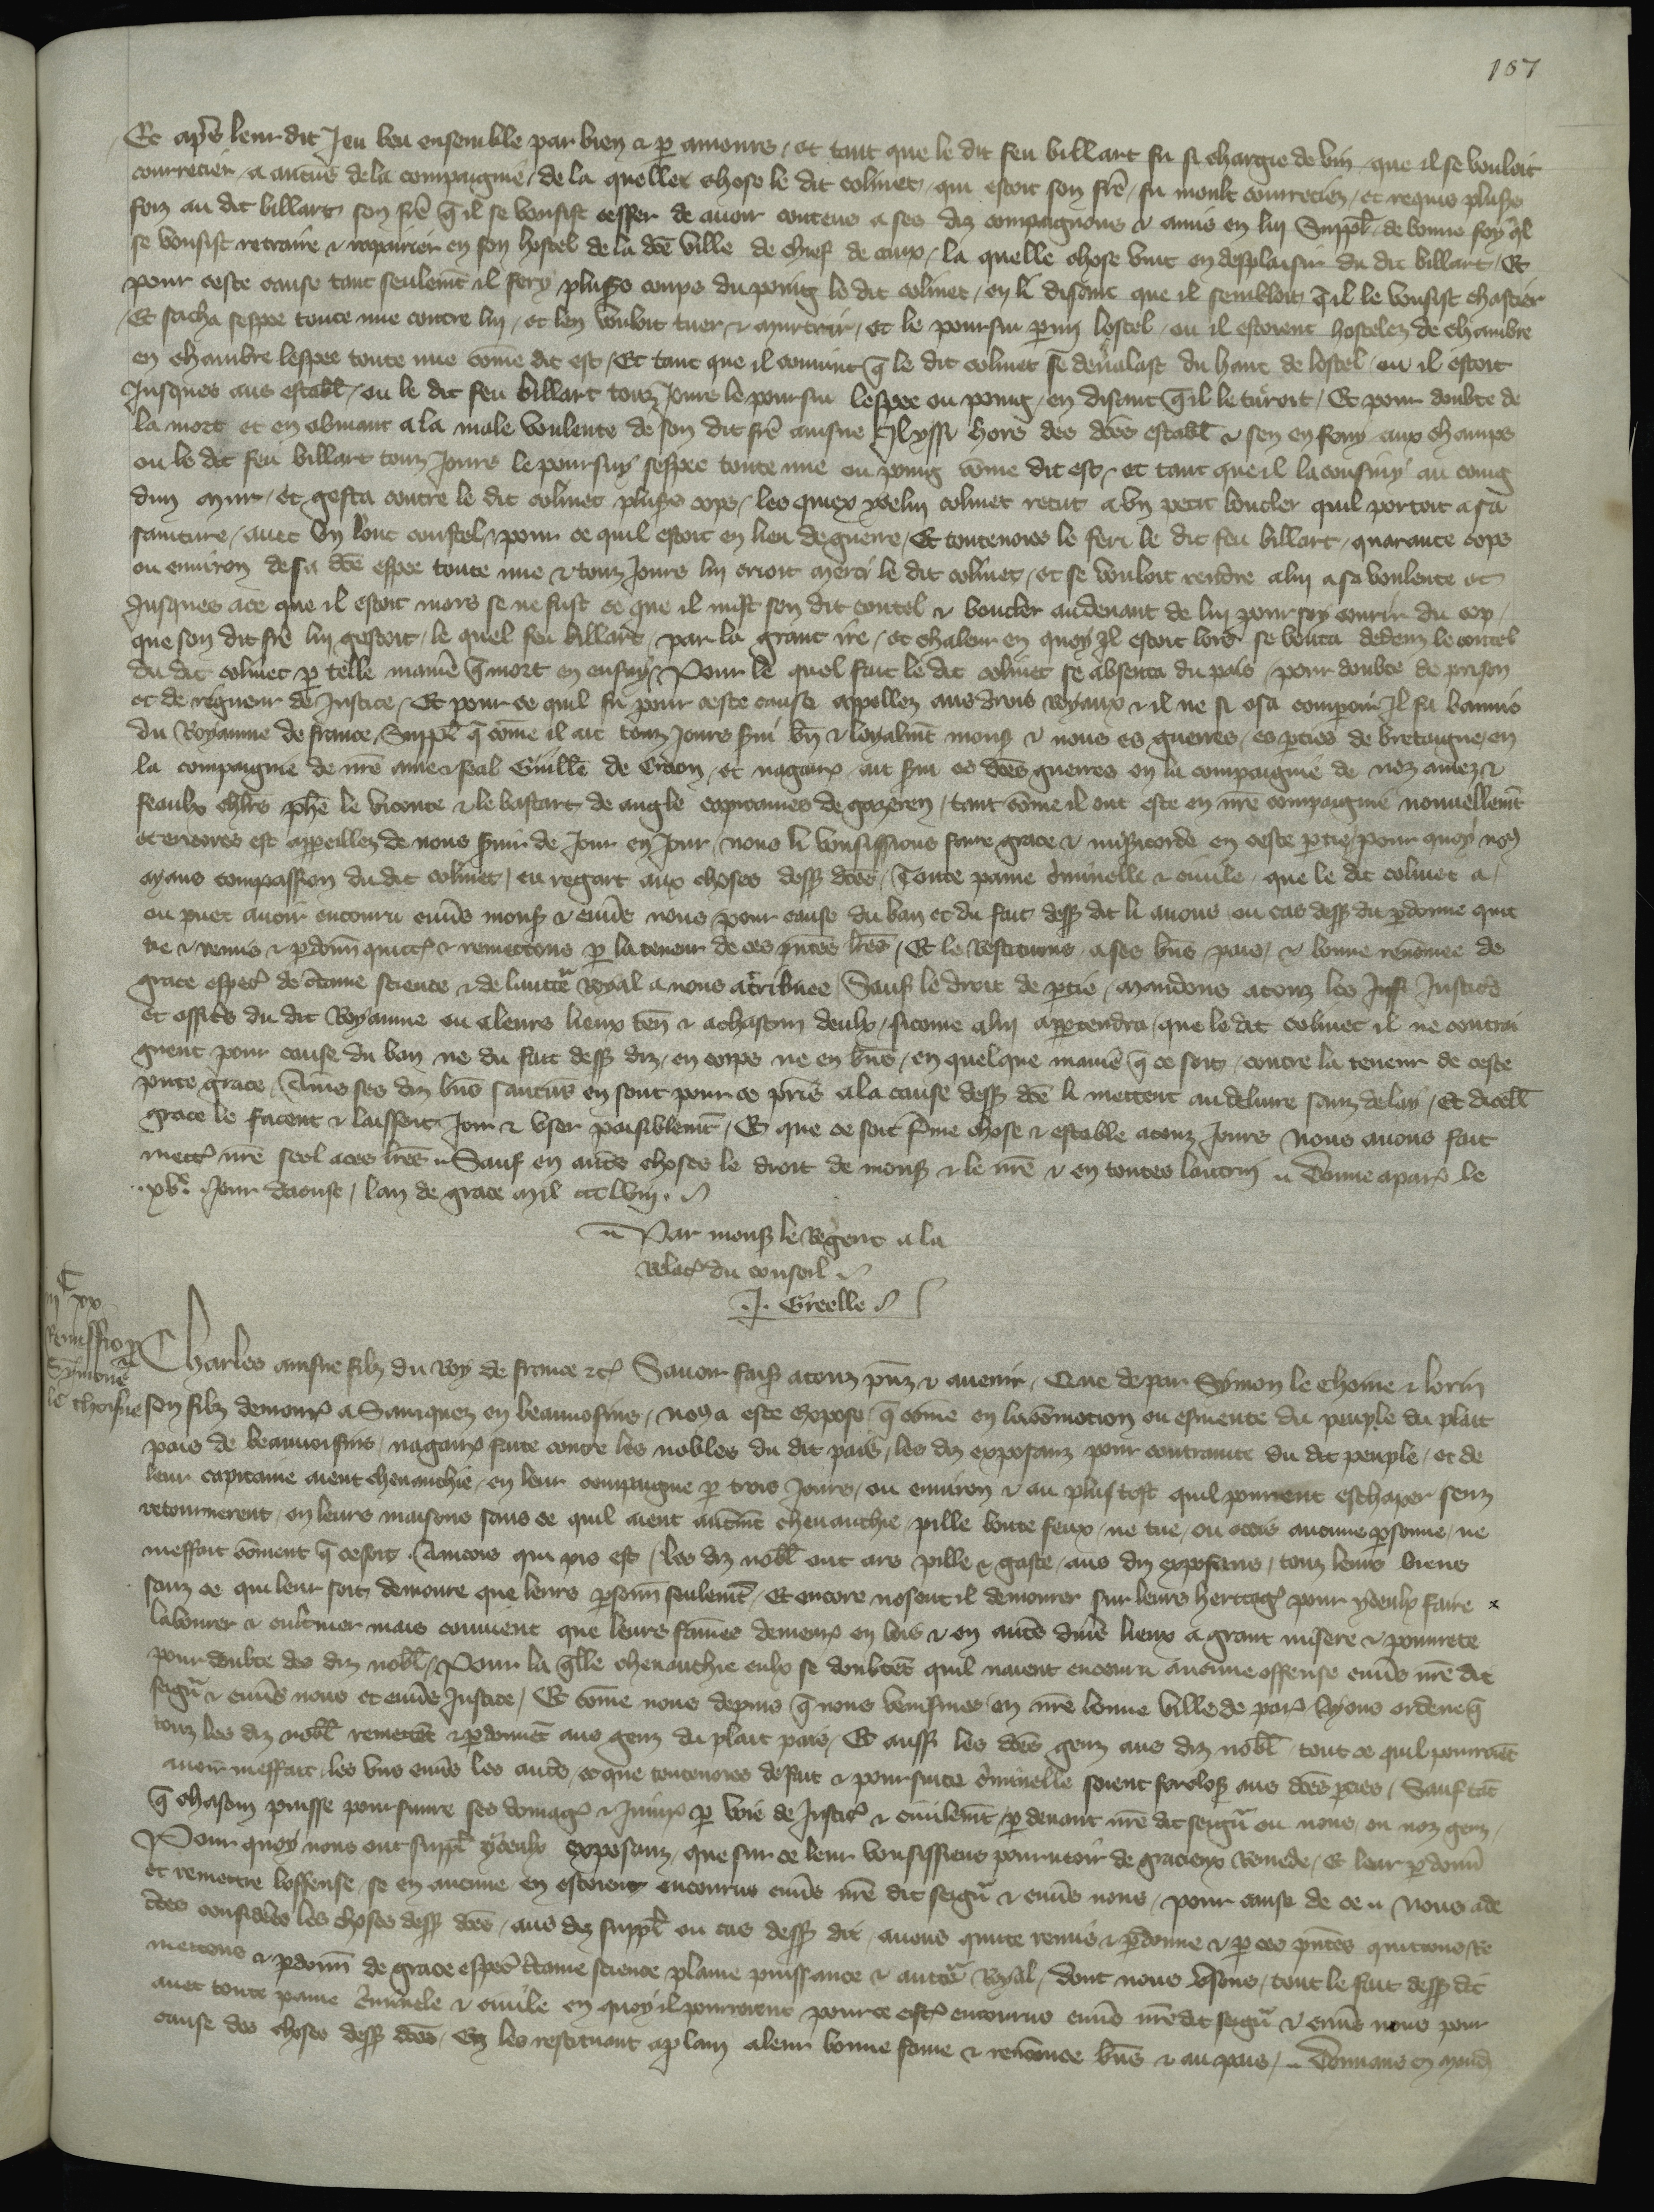 107
Et ap̃s leur dit Jeu beu ensemble par bien & p amours, et tant que le dit feu billart fu si chargie de vin que il se vouloit
courrecier a aucũs de la compaignie, de la quelle chose le dit colinet, qui estoit son frẽ, fu moult courreciez, et requis plus̃s
foiz au dit billart son frẽ q̃ il se vousist cesser de avoir contens a ses diz compaignons & amis en luy suppl̃ de bonne foy q̃l
se vousist retraire & repairier en son hostel de la dc̃e ville de chief de caux, la quelle chose vint en desplaisir du dit billart, Et
pour ceste cause tant seulem̃t il fery plus̃s coups du poing le dit colinet, en li disant que il sembloit q̃ il le vousist chastier
Et sacha sespee toute nue contre luy, et len vouloit tuer & murtrir, et le poursui p̱my lostel ou il estoient hostelez de chambre
en chambre lespee toute nue com̃e dit est, Et tant que il convint q̃ le dit colinet se devalast du haut de lostel, ou il estoit
Jusques aus establ̃, ou le dit feu billart touz jours le poursui lespee ou poing, en disant q̃ il le turoit, Et pour doubte de
la mort et en obviant a la male voulente de son dit frẽ ainsne Il yssi hors des dc̃es establ̃ & sen en fouy aux champs
ou le dit feu billart touz Jours le poursuy sespee toute nue ou poing com̃e dit est, et tant que il laconsuiy au coing
dun mur, et gesta contre le dit colinet plus̃s cops, les quiex ycelui colinet recut a un petit boucler quil portoit a sa
sainture, avec un lonc coustel, pour ce quil estoit en lieu de guerre, Et toutevoies le feri le dit feu billart, quarante cops
ou environ de sa dc̃e espee toute nue & touz Jours luy crioit merci le dit colinet, et se vouloit rendre a luy a sa voulente et
Jusques a ce que il estoit mors se ne fust ce que il mist son dit coutel & boucler au devant de luy pour soy couvrir du cop,
que son dit frẽ luy gestoit, le quel feu billart, par la grant ire, et chaleur en quoy Il estoit lors se bouta dedenz le coutel
du dit colinet p telle manie͂ q̃ mort en ensuy, Pour le quel fait le dit colinet se absenta du pais pour doubte de prison
et de rigueur de Justice, Et pour ce quil fu pour ceste cause appellez aus drois royaux & il ne si osa comparoir Il fu bannis
du Royaume de france, Suppl̃ q̃ com̃e il ait touz Jours s̃vi bñ & loyalm̃t mons̃ & nous es guerres, es p̱ties de bretaigne, en
la compaignie de nr̃e ame & feal Guille͂ de Craon, et nagair̃s ait s̃vi es dc̃es guerres en la compaignie de noz amez &
feaulx chlr̃s ph̃e le viconte & le bastart de angle capitaines de gazeren, tant com̃e il ont este en nr̃e compaignie nouvellem̃t
et encores est appeillez de nous s̃vir de Jour en Jour, nous li vousissions faire grace & mis̃icorde en ceste p̱tie, pour quoy nous
ayans compassion du dit colinet, eu regart aux choses dess̃ dc̃es, Toute paine c̃minelle & civile, que le dit colinet a,
ou puet avoir encouru enṽs mons̃ & enṽs nous pour cause du ban et du fait dess̃ dit li avons ou cas dess̃ du p̱donne quit
tie & remis & p̱donñ quict̃ & remettons p la teneur de ces pñtes lr̃es, Et le restituons a ses bñs pais, & bonne renom̃ee de
grace esp̃ec̃ de c̃taine science & de laucte͂ royal a nous attribuee, Sauf le droit de p̱tie, Mandons a touz les Justi Justic̃s
et offic̃s du dit Royaume ou a leurs lieux ten̄ & a chascun deulx, si com̃e a luy appartendra, que le dit colinet il ne contrai
gnent pour cause du ban ne du fait dess̃ diz, en corps ne en bñs, en quelque manie͂ q̃ ce soit, contre la teneur de ceste
pñte grace, Ains ses diz bñs saucũs en sont pour ce pris a la cause dess̃ dc̃e li mettent au delivre sanz delay, Et dicell̃
grace le facent & laissent Joir & user paisiblem̃t, Et que ce soit ferme chose & estable a touz Jours nous avons fait
mett̃ nr̃e seel a ces lr̃es. Sauf en autr̃s choses le droit de mons̃ & le nr̃e & en toutes lautruy. Donne a par̃ le
xv.e Jour daoust, lan de grace mil ccclviij.
Par mons̃ le Regent a la
relac̃ du conseil
J. Greelle
iij C xx
Remissio p
Symone
le choisne
Charles ainsne filz du Roy de france etc̃ Savoir fais̃ a touz pñz & avenir, Que de par Symon le choine & lorin
son filz demour̃ a Sauqnez en beauvoisins, nous a este expose q̃ com̃e en la com̃ocion ou esmeute du peuple du plait
pais de beauvoisins, nagair̃s faite contre les nobles du dit pais, les diz exposanz pour contrainte du dit peuple, et de
leur capitaine aient chevauchie en leur compaignie p trois Jours, ou environ & au plus tost quil pourrent eschaper senz
retournerent, en leurs maisons sans ce quil aient autrem̃t chevauchie, pille boute feux, ne tue, ou occis aucune p̱sonne, ne
meffait com̃ent q̃ ce soit. Aincois qui pis est, les diz nobl̃ ont ars pille & gaste, aus diz exposans, touz leurs biens
sanz ce qui leur soit demoure que leurs p̱sonñ seulem̃t, Et encore nosent il demourer sur leurs heritag̃ pour yceulx faire x
labourer & cultiver mais convient que leurs fam̃es demeur̃ en bois & en autr̃s diṽs lieux a grant misere & povrete
pour doubte des diz nobl̃, Pour la q̃lle chevauchie eulx se doubtẽt quil naient encouru aucune offense enṽs nr̃e dit
seigñ & enṽs nous et enṽs Justice, Et com̃e nous depuis q̃ nous venismes en nr̃e bonne ville de par̃ Ayons ordene q̃
touz les diz nobl̃ remettẽt & p̱donnẽt aus genz du plait pais, Et aussi les dc̃es genz aus diz nobl̃ tout ce quil pourroiẽt
avoir meffait, les uns enṽs les autr̃s, et que toutevoies de fait & poursuite c̃minelle soient forclos̃ aus dc̃es p̱ties, Sauf tãt
q̃ chascun puisse poursuivre ses domag̃ & Iniur̃ p voie de Justic̃ & civilem̃t p devant nr̃e dit seigñ ou nous, ou noz genz,
Pour quoy nous ont suppl̃ yceulx exposanz, que sur ce leur vousissions pourveoir de gracieux remede, Et leur p̱donñ
et remettre loffense, se en aucune en estoient encourus enṽs nr̃e dit seigñ & enṽs nous, pour cause de ce. Nous a de
c̃tes consider̃s les choses dess̃ dc̃es, aus diz suppl̃ ou cas dess̃ dit, avons quitte remis & p̱donne & p ces pñtes quictons re
mettons & p̱donñ de grace esp̃ec̃ c̃taine science plaine puissance & aucte͂ Royal, dont nous usons, tout le fait dess̃ dit
avec toute paine c̃minele & civile en quoy il pourroient pour ce estr̃ encourus enṽs nr̃e dit seigñ & enṽs nous pour
cause des choses dess̃ dc̃es, En les restituant a plain a leur bonne fame & renom̃ee bñs & au pais, Donnans en mand̃